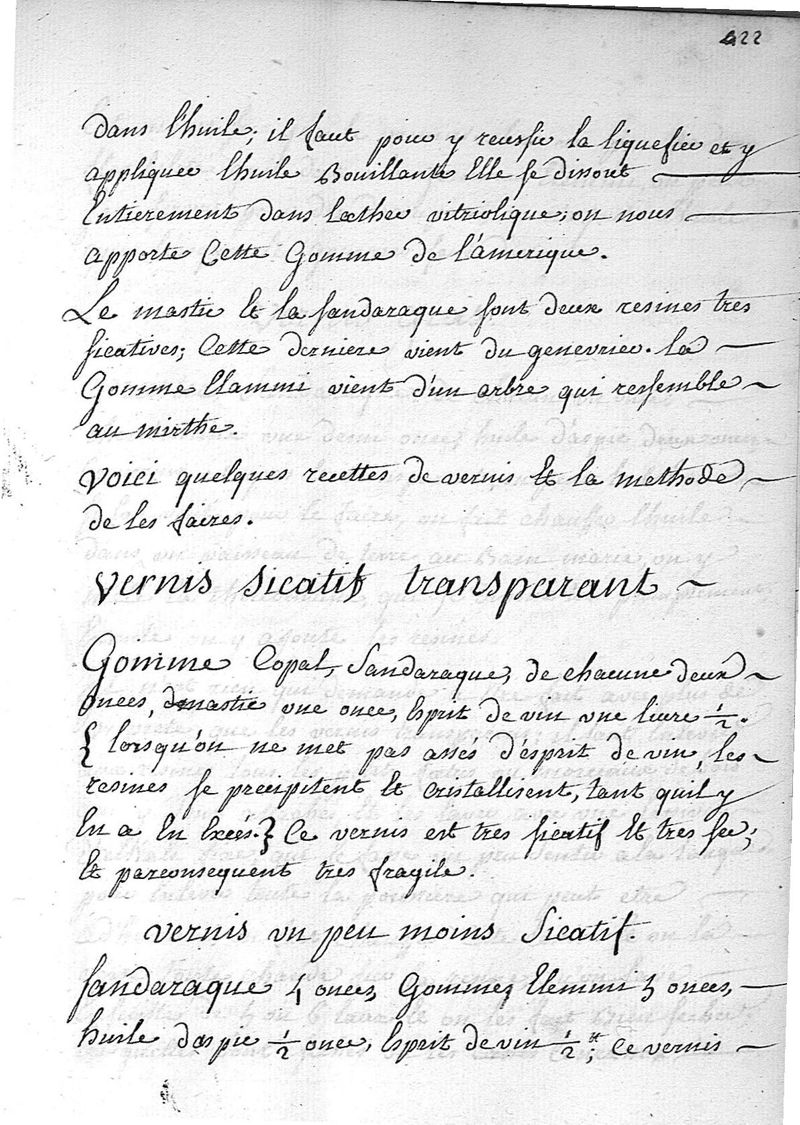 422
dans l'huile; il faut pour y reussir la liquefier et y
appliquer l'huile Bouillante Elle se dissout
Entierement dans l'æther vitriolique; on nous
apporte Cette Gomme de l'amerique.
Le mastic Et la sandaraque sont deux resines tres
sicatives; Cette derniere vient du genevrier. la
Gomme Elammi vient d'un arbre qui ressemble
au mirthe.
Voici quelques recettes de vernis Et la methode
de les faires.
Vernis Sicatif transparant
Gomme Copal, Sandaraque, de chacune deux
onces, de mastic une once, Esprit de vin une livre ½.
{ lorsqu'on ne met pas assés d'ésprit de vin, les
resines se precipitent Et cristallisent, tant quil y
En a En Excés.} Ce vernis est tres sicatif Et tres sec;
Et parconsequent tres fragile.
Vernis un peu moins Sicatif.
sandaraque 4 onces, Gommez Elemmi 3 onces,
huile d'aspic ½ once, Esprit de vin ½ ₶; Ce vernis